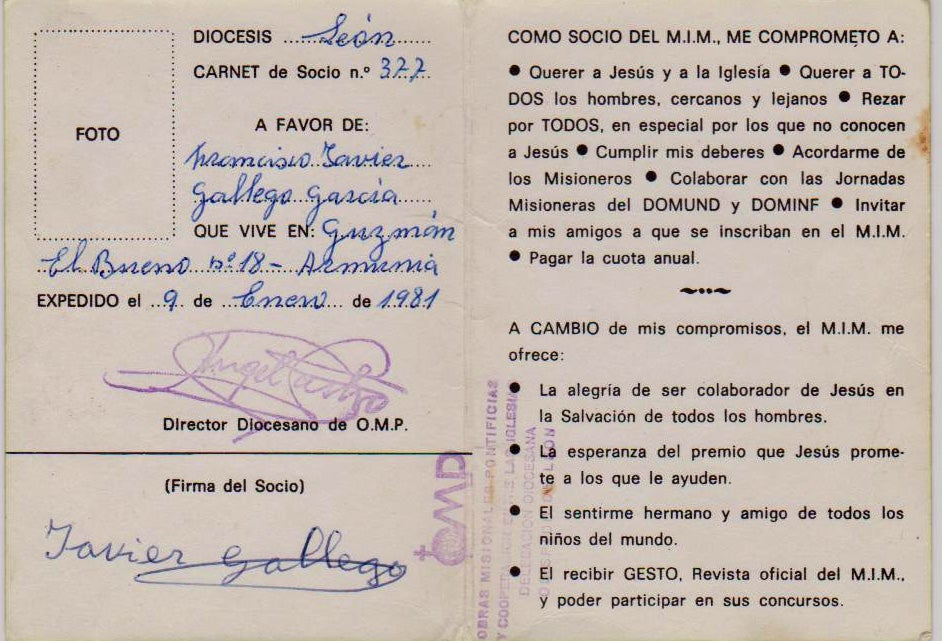 DIOCESIS León
CARNET de Socio n.º 377
FOTO
A FAVOR DE:
Francisco Javier
Gallego García
QUE VIVE EN: Guzmán
El Bueno nº 18 - Armunia
EXPEDIDO el 9 de Enero de 1981
Director Diocesano de O.M.P.
(Firma del Socio)
Javier Gallego
COMO SOCIO DEL M.I.M., ME COMPROMETO A:
● Querer a Jesús y a la Iglesía ● Querer a TO-
DOS los hombres, cercanos y lejanos ● Rezar
por TODOS, en especial por los que no conocen
a Jesús ● Cumplir mis deberes ● Acordarme de
los Misioneros ● Colaborar con las Jornadas
Misioneras del DOMUND y DOMINF ● Invitar
a mis amigos a que se inscriban en el M.I.M.
● Pagar la cuota anual.
A CAMBIO de mis compromisos, el M.I.M. me
ofrece:
● La alegría de ser colaborador de Jesús en
la Salvación de todos los hombres.
● La esperanza del premio que Jesús prome-
te a los que le ayuden.
● El sentirme hermano y amigo de todos los
niños del mundo.
● El recibir GESTO, Revista oficial del M.I.M.,
y poder participar en sus concursos.
OMP
OBRAS MISIONALES PONTIFICIAS
DELEGACION DIOCESANA